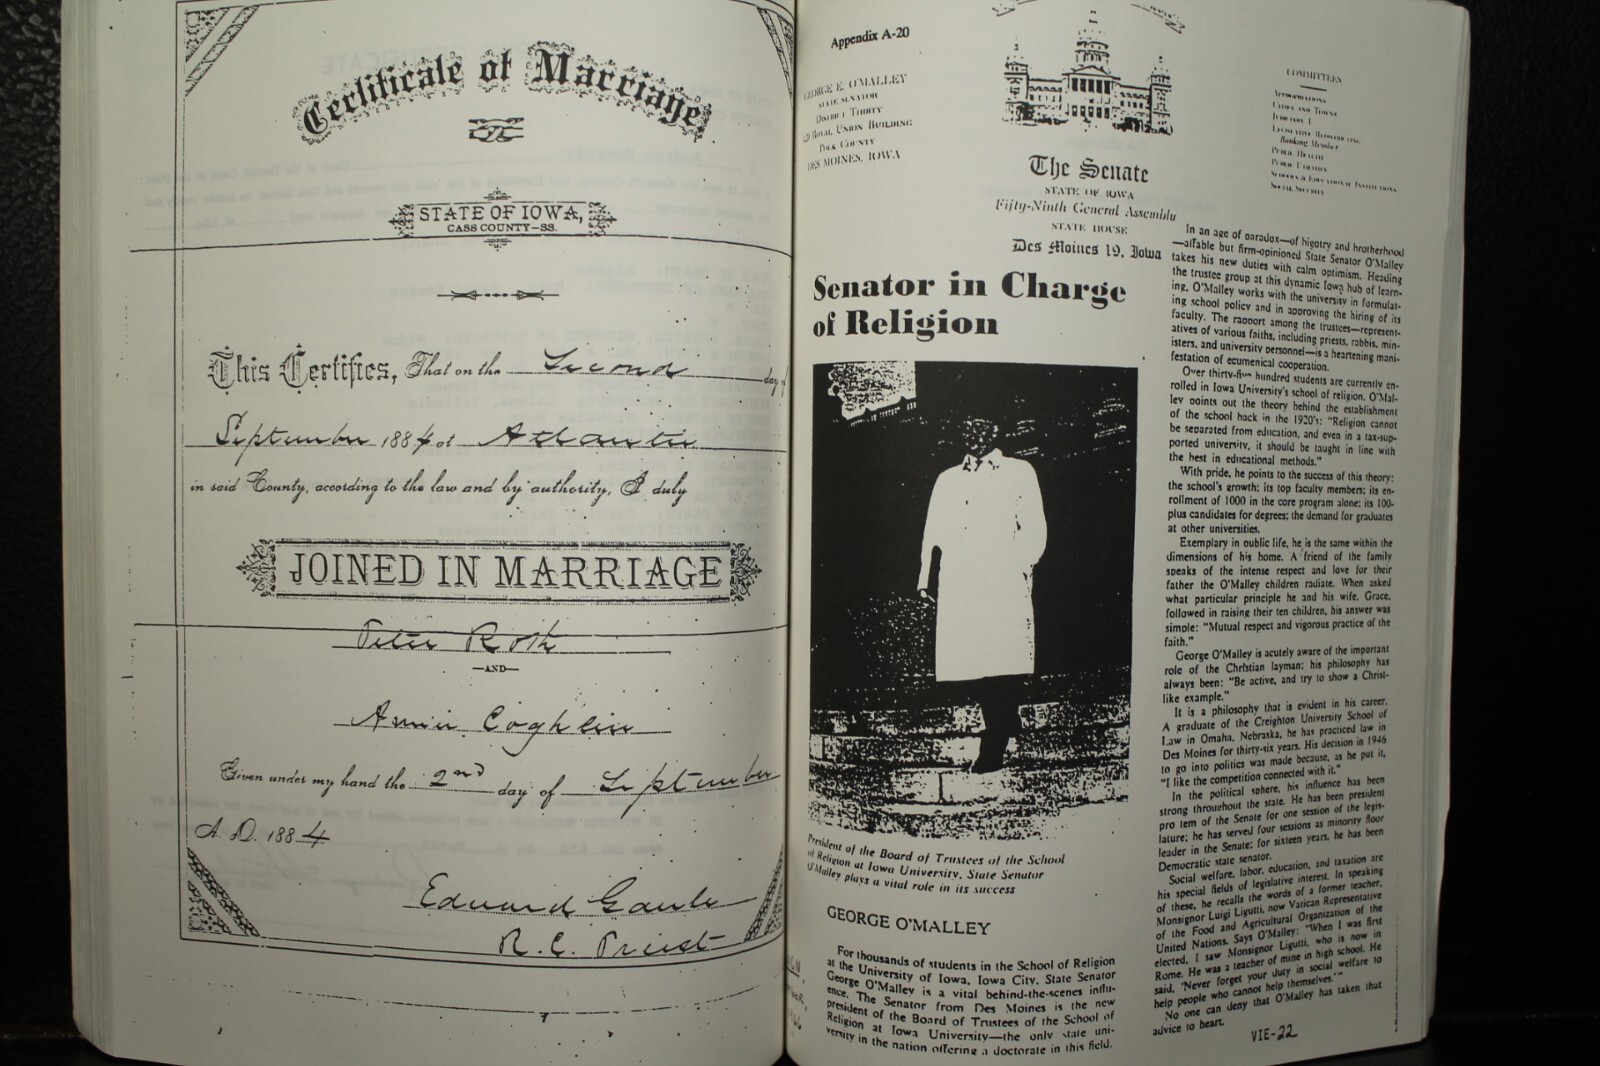 Certificate of Marriage
STATE OF IOWA,
CASS COUNTY—SS.
This Certifies, That on the Second day of
September 1884 at Atlantic
in said County, according to the law and by authority, I duly
JOINED IN MARRIAGE
Peter Roth
—AND—
Annie Coghlin
Given under my hand the 2nd day of September
A. D. 1884
Edward Gaule
R. C. Priest
Appendix A-20
GEORGE E. O'MALLEY
STATE SENATOR
DISTRICT THIRTY
ROYAL UNION BUILDING
POLK COUNTY
DES MOINES, IOWA
The Senate
STATE OF IOWA
Fifty-Ninth General Assembly
STATE HOUSE
Des Moines 19, Iowa
COMMITTEES
APPROPRIATIONS
CITIES AND TOWNS
JUDICIARY 1
LEGISLATIVE REDISTRICTING,
Ranking Member
PUBLIC HEALTH
PUBLIC UTILITIES
SCHOOLS & EDUCATIONAL INSTITUTIONS
SOCIAL SECURITY
Senator in Charge
of Religion
President of the Board of Trustees of the School
of Religion at Iowa University, State Senator
O'Malley plays a vital role in its success
GEORGE O'MALLEY
For thousands of students in the School of Religion
at the University of Iowa, Iowa City, State Senator
George O'Malley is a vital behind-the-scenes influ-
ence. The Senator from Des Moines is the new
president of the Board of Trustees of the School of
Religion at Iowa University—the only state uni-
versity in the nation offering a doctorate in this field.
In an age of paradox—of bigotry and brotherhood
—affable but firm-opinioned State Senator O'Malley
takes his new duties with calm optimism. Heading
the trustee group at this dynamic Iowa hub of learn-
ing, O'Malley works with the university in formulat-
ing school policy and in approving the hiring of its
faculty. The rapport among the trustees—represent-
atives of various faiths, including priests, rabbis, min-
isters, and university personnel—is a heartening mani-
festation of ecumenical cooperation.
Over thirty-five hundred students are currently en-
rolled in Iowa University's school of religion. O'Mal-
ley points out the theory behind the establishment
of the school back in the 1920's: "Religion cannot
be separated from education, and even in a tax-sup-
ported university, it should be taught in line with
the best in educational methods."
With pride, he points to the success of this theory:
the school's growth; its top faculty members; its en-
rollment of 1000 in the core program alone; its 100-
plus candidates for degrees; the demand for graduates
at other universities.
Exemplary in public life, he is the same within the
dimensions of his home. A friend of the family
speaks of the intense respect and love for their
father the O'Malley children radiate. When asked
what particular principle he and his wife, Grace,
followed in raising their ten children, his answer was
simple: "Mutual respect and vigorous practice of the
faith."
George O'Malley is acutely aware of the important
role of the Christian layman; his philosophy has
always been: "Be active, and try to show a Christ-
like example."
It is a philosophy that is evident in his career.
A graduate of the Creighton University School of
Law in Omaha, Nebraska, he has practiced law in
Des Moines for thirty-six years. His decision in 1946
to go into politics was made because, as he put it,
"I like the competition connected with it."
In the political sphere, his influence has been
strong throughout the state. He has been president
pro tem of the Senate for one session of the legis-
lature; he has served four sessions as minority floor
leader in the Senate; for sixteen years, he has been
Democratic state senator.
Social welfare, labor, education, and taxation are
his special fields of legislative interest. In speaking
of these, he recalls the words of a former teacher,
Monsignor Luigi Ligutti, now Vatican Representative
of the Food and Agricultural Organization of the
United Nations. Says O'Malley: "When I was first
elected, I saw Monsignor Ligutti, who is now in
Rome. He was a teacher of mine in high school. He
said, 'Never forget your duty in social welfare to
help people who cannot help themselves.'"
No one can deny that O'Malley has taken that
advice to heart.
VIE-22